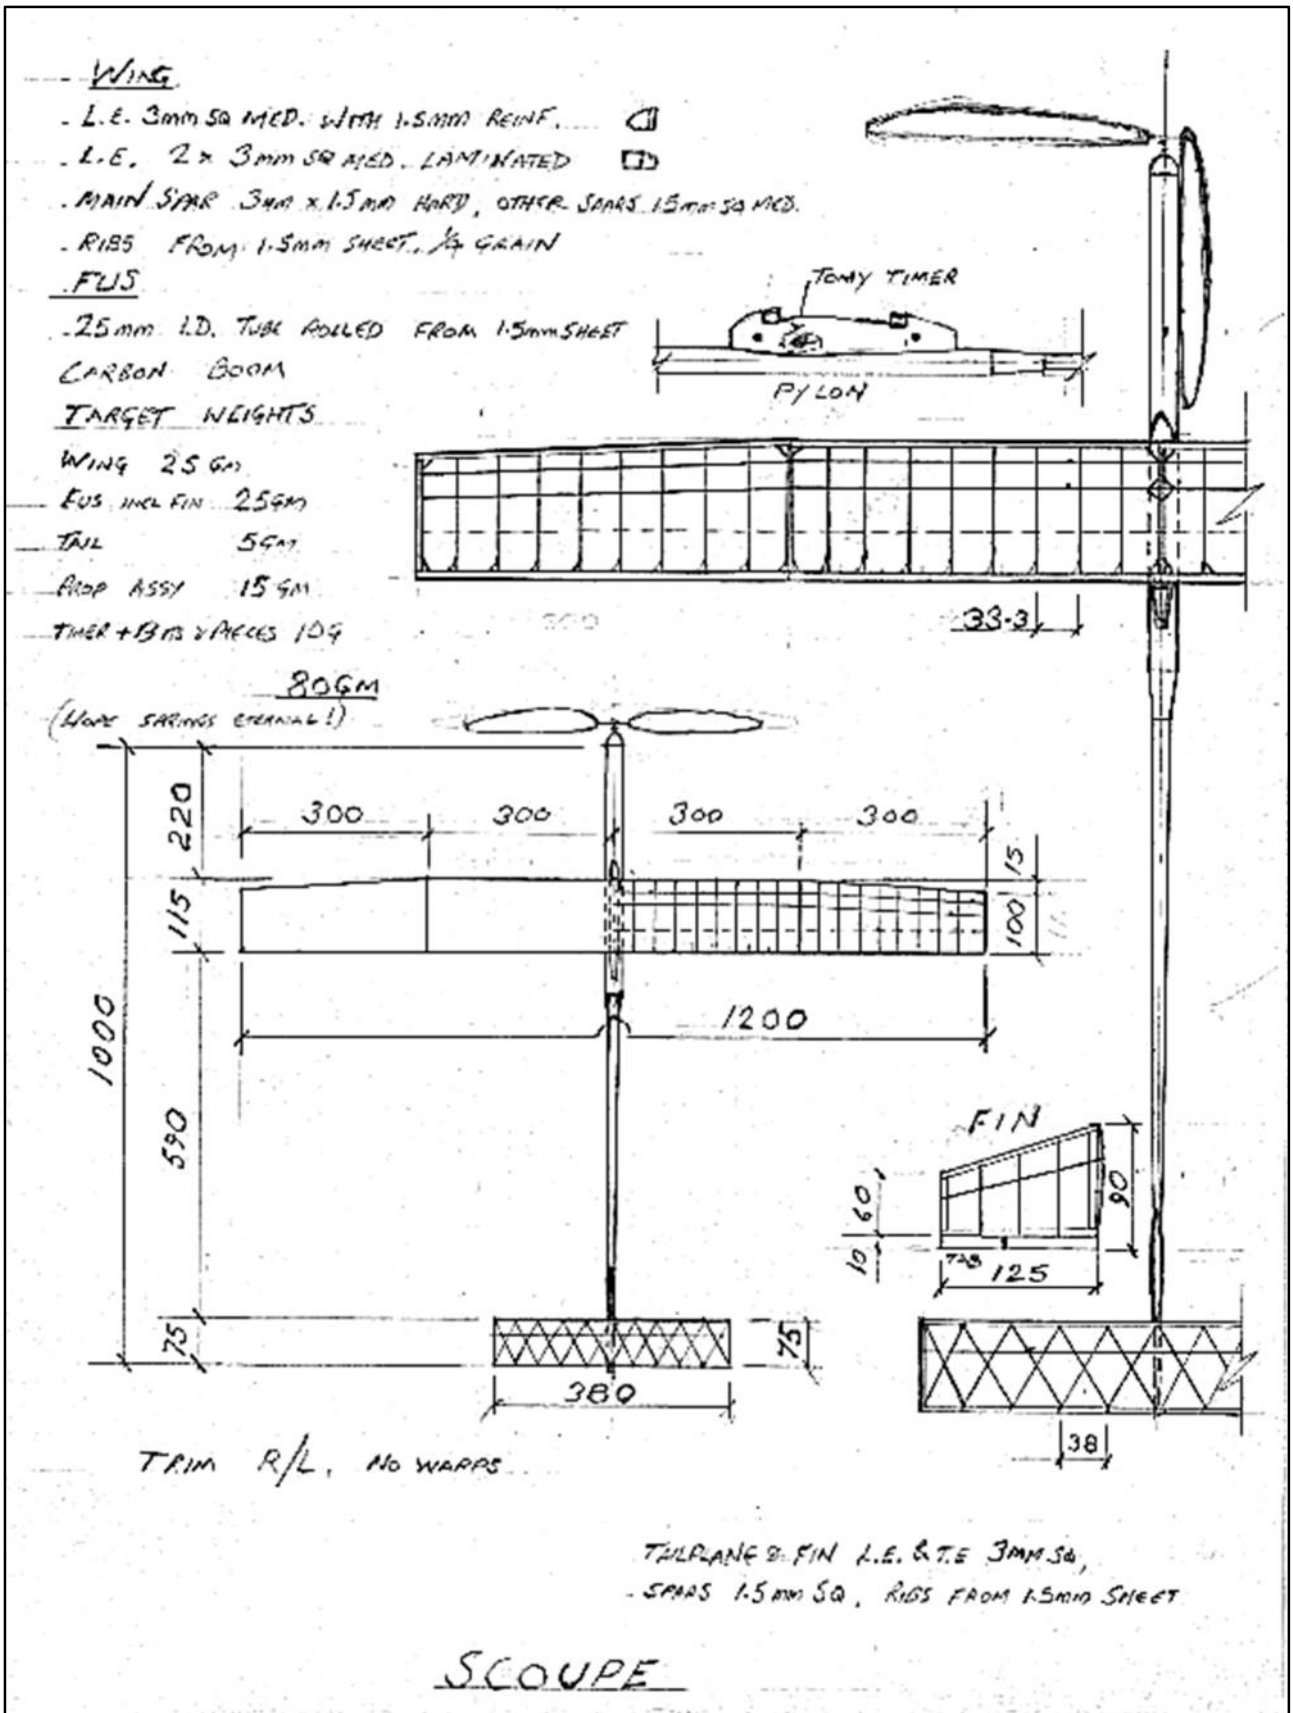 WING
- L.E. 3mm SQ MED. WITH 1.5MM REINF.
- L.E. 2 x 3mm SQ MED. LAMINATED
- MAIN SPAR 3mm x 1.5mm HARD, OTHER SPARS 1.5mm SQ MED.
- RIBS FROM 1.5mm SHEET, 1/4 GRAIN
FUS
- 25mm I.D. TUBE ROLLED FROM 1.5mm SHEET
CARBON BOOM
TARGET WEIGHTS
WING 25 GM
FUS INCL FIN 25GM
TAIL 5GM
PROP ASSY 15GM
TIMER + BITS & PIECES 10G
80GM
(HOPE SPRINGS ETERNAL!)
TOMY TIMER
PYLON
33.3
300
300
300
300
220
115
590
75
1000
15
100
1200
380
75
FIN
60
10
90
TAB
125
38
TRIM R/L, NO WARPS
TAILPLANE & FIN L.E. & T.E 3MM SQ,
- SPARS 1.5 mm SQ, RIBS FROM 1.5mm SHEET
SCOUPE